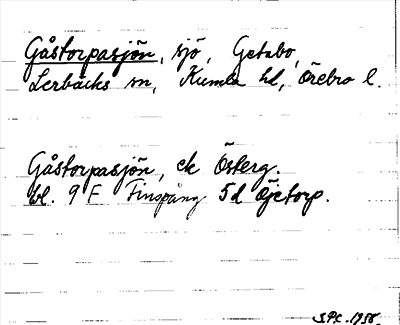 Gåstorpasjön, sjö, Getabo,
Lerbäcks sn, Kumla hd, Örebro l.
Gåstorpasjön, ek Österg.
bl. 9 F Finspång 5d Öjetorp.
S.P.C. 1958.